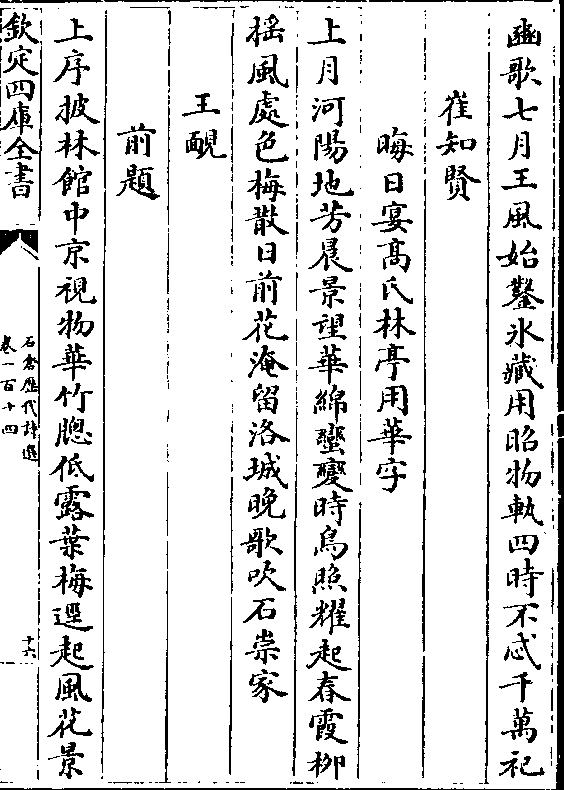 豳歌七月王風始鑿冰藏用昭物軌四時不忒千萬祀
崔知賢
晦日宴髙氏林亭用華字
上月河陽地芳晨景望華綿蠻變時鳥照耀起春霞柳
揺風處色梅散日前花淹留洛城晚歌吹石崇家
王酛
前題
上序披林館中京視物華竹䆫低露葉梅逕起風花景
欽定四庫全書
石倉歴代詩選
卷一百十四
十六